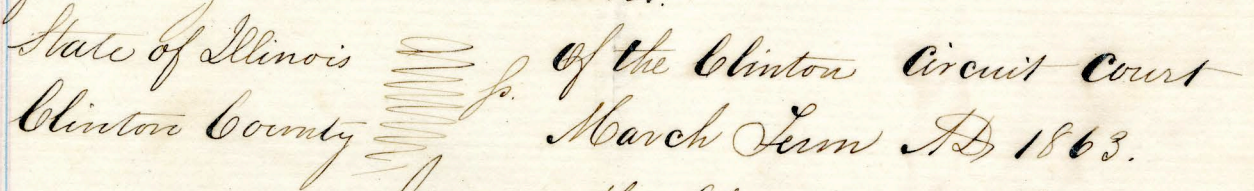 State of Illinois
Clinton County
ss.
Of the Clinton Circuit Court
March Term AD 1863.